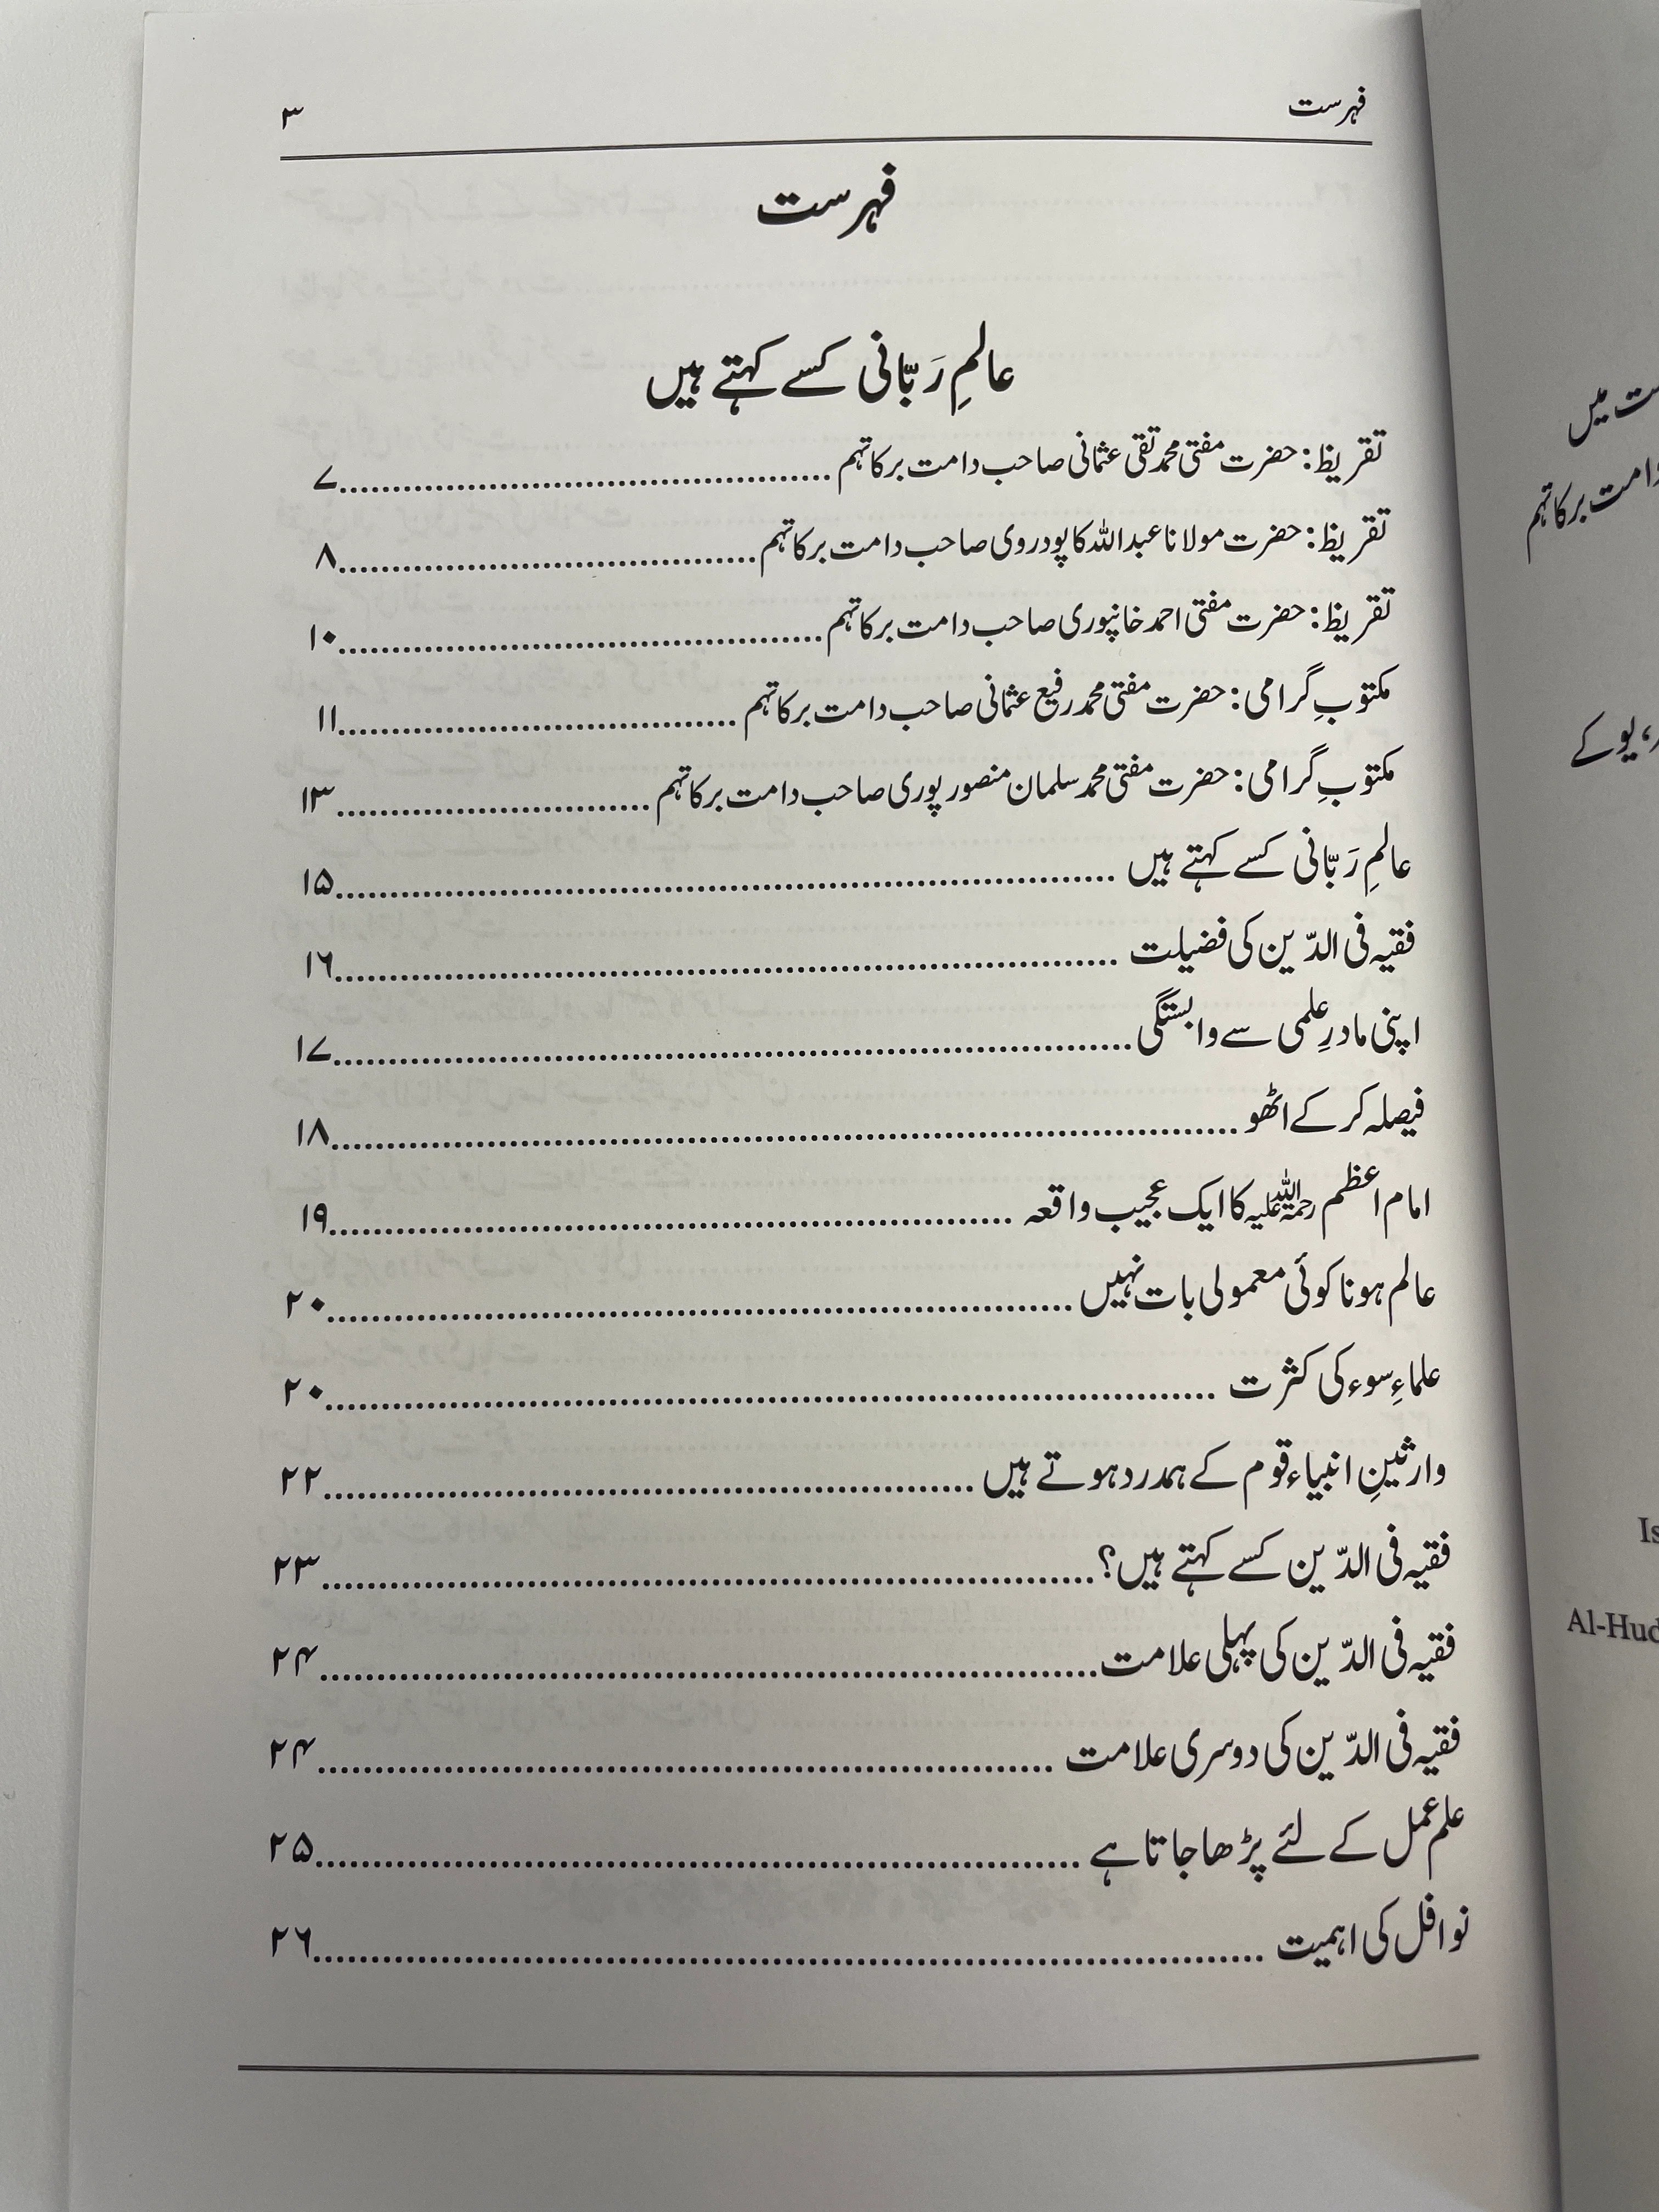 فہرست ۳
فہرست
عالمِ رَبّانی کسے کہتے ہیں
تقریظ: حضرت مفتی محمد تقی عثمانی صاحب دامت برکاتہم ............ ۷
تقریظ: حضرت مولانا عبد اللہ کاپودروی صاحب دامت برکاتہم ............ ۸
تقریظ: حضرت مفتی احمد خانپوری صاحب دامت برکاتہم ............ ۱۰
مکتوبِ گرامی: حضرت مفتی محمد رفیع عثمانی صاحب دامت برکاتہم ............ ۱۱
مکتوبِ گرامی: حضرت مفتی محمد سلمان منصور پوری صاحب دامت برکاتہم ............ ۱۳
عالمِ رَبّانی کسے کہتے ہیں ............ ۱۵
فقیہ فی الدّین کی فضیلت ............ ۱۶
اپنی مادرِ علمی سے وابستگی ............ ۱۷
فیصلہ کر کے اٹھو ............ ۱۸
امام اعظم رحمۃ اللہ علیہ کا ایک عجیب واقعہ ............ ۱۹
عالم ہونا کوئی معمولی بات نہیں ............ ۲۰
علماءِ سوء کی کثرت ............ ۲۰
وارثینِ انبیاء قوم کے ہمدرد ہوتے ہیں ............ ۲۲
فقیہ فی الدّین کسے کہتے ہیں؟ ............ ۲۳
فقیہ فی الدّین کی پہلی علامت ............ ۲۴
فقیہ فی الدّین کی دوسری علامت ............ ۲۴
علم عمل کے لئے پڑھا جاتا ہے ............ ۲۵
نوافل کی اہمیت ............ ۲۶
میں
دامت برکاتہم
یو کے
Is
Al-Hud